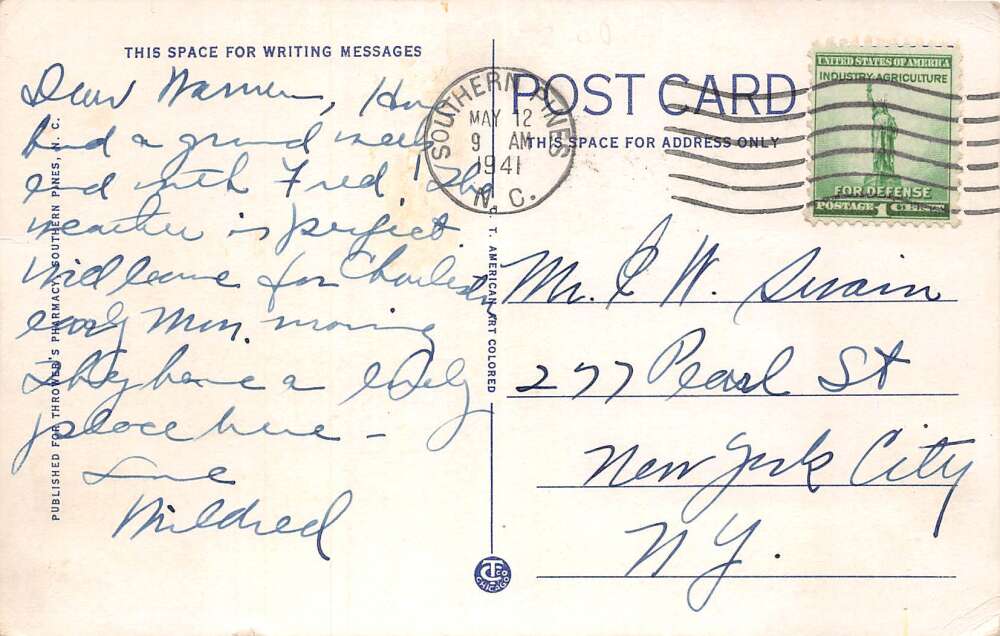 THIS SPACE FOR WRITING MESSAGES
Dear Warren, Have
had a grand week
end with Fred! The
weather is perfect.
Will leave for Charleston
early Mon. morning
They have a lovely
place here –
Love
Mildred
PUBLISHED FOR THROWER'S PHARMACY, SOUTHERN PINES, N. C.
C. T. AMERICAN ART COLORED
CTCO CHICAGO
POST CARD
THIS SPACE FOR ADDRESS ONLY
SOUTHERN PINES
MAY 12
9 AM
1941
N. C.
UNITED STATES OF AMERICA
INDUSTRY AGRICULTURE
FOR DEFENSE
POSTAGE 1¢
Mr. W. Swain
277 Pearl St
New York City
N.Y.